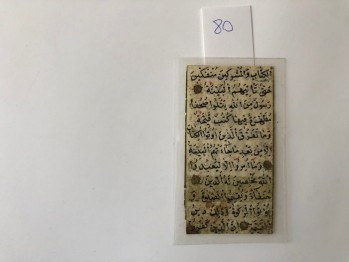 80
الكتاب والمشركين منفكين
حتى تاتيهم البينة
رسول من الله يتلوا صحفا
مطهرة فيها كتب قيمة
وما تفرق الذين اوتوا الكتا
الا من بعد ما جاءتهم البينة
وما امروا الا ليعبدوا
الله مخلصين له الدين
حنفاء ويقيموا الصلوة و
يؤتوا الزكوة وذلك دين
القيمة ان الذين